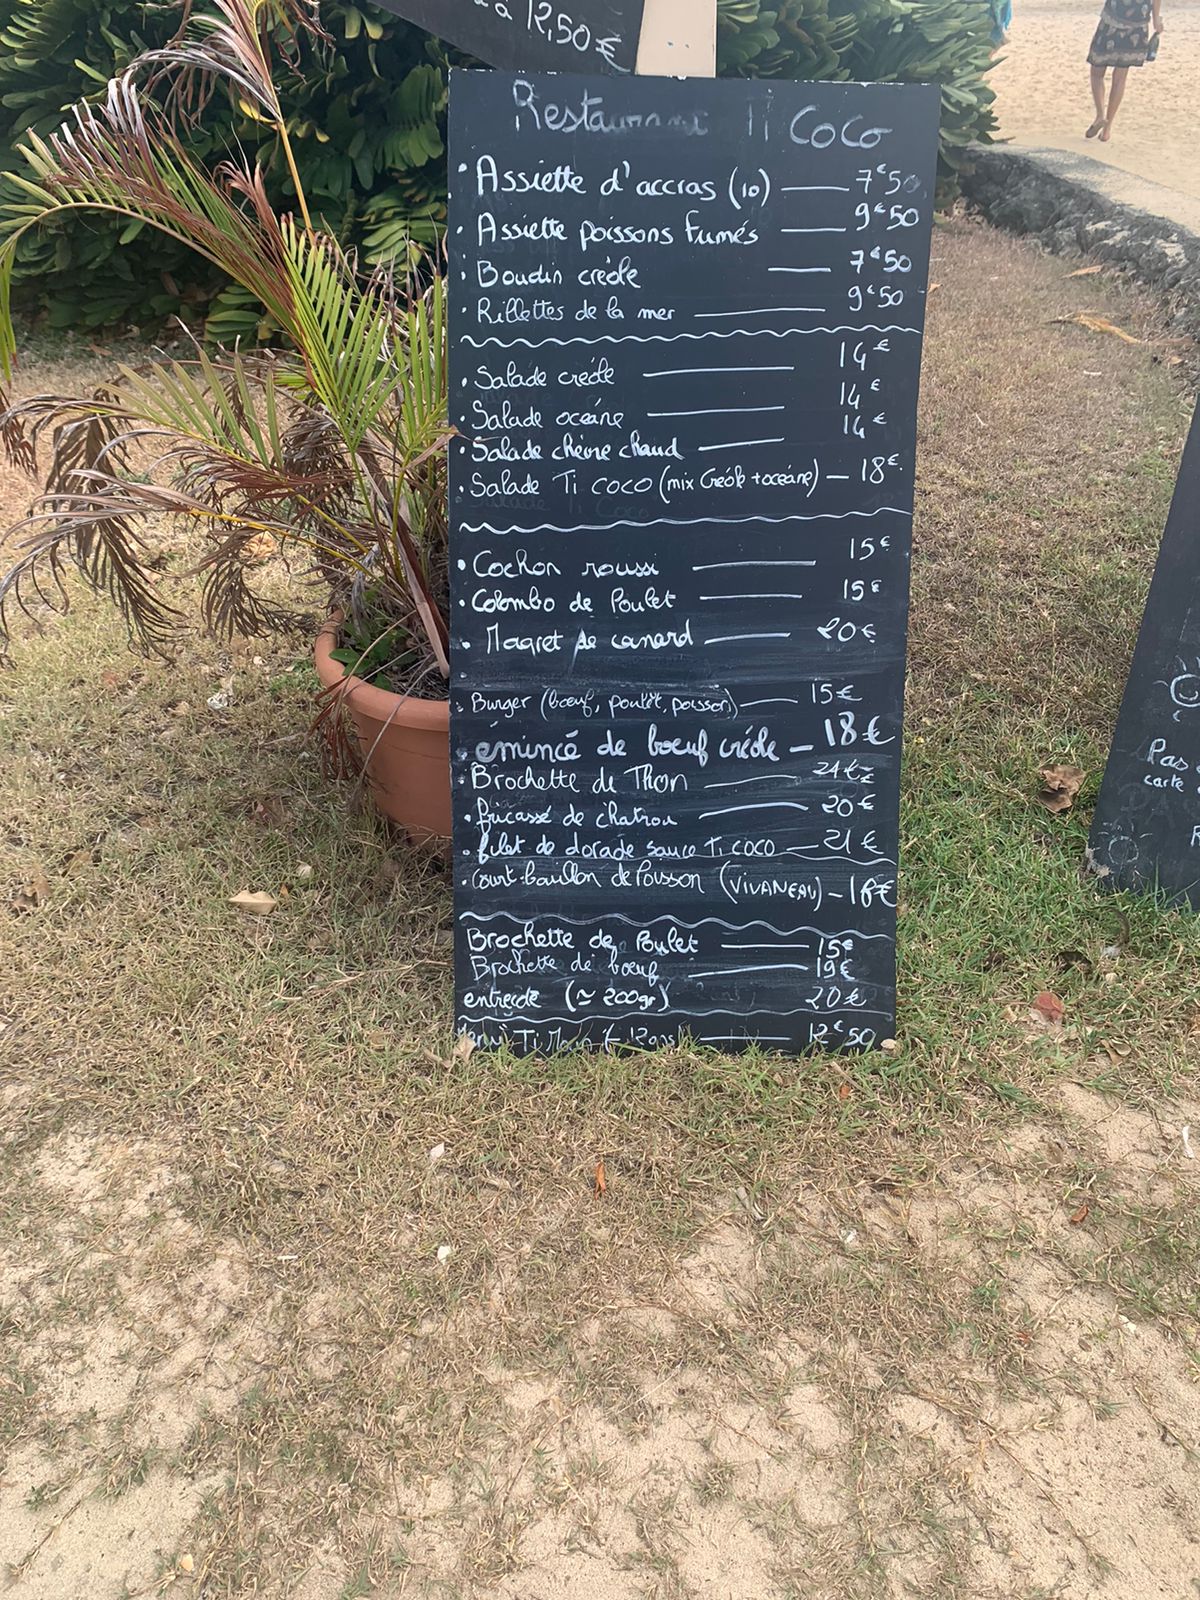 à 12,50€
Restaurant Ti CoCo
• Assiette d'accras (10) — 7€50
• Assiette poissons fumés — 9€50
• Boudin créole — 7€50
• Rillettes de la mer — 9€50
• Salade créole — 14€
• Salade océane — 14€
• Salade chèvre chaud — 14€
• Salade Ti coco (mix Créole + océane) — 18€
• Cochon roussi — 15€
• Colombo de Poulet — 15€
• Magret de canard — 20€
• Burger (bœuf, poulet, poisson) — 15€
• émincé de bœuf créole — 18€
• Brochette de Thon — 24€
• fricassé de chatrou — 20€
• filet de dorade sauce Ti coco — 21€
• Court-bouillon de Poisson (VIVANEAU) — 18€
Brochette de Poulet — 15€
Brochette de bœuf — 19€
entrecôte (≃ 200gr) — 20€
Menu Ti Moun (- 12ans) — 12€50
Pas
carte